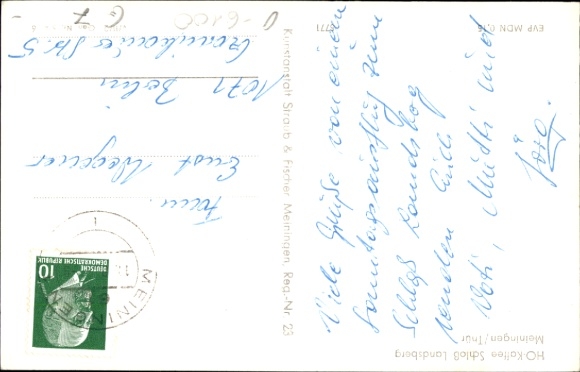 HO-Kaffee Schloß Landsberg
Meiningen/Thür
EVP MDN 0,16
Viele Grüße von einem
Sonntagsausflug zum
Schloß Landsberg
senden Euch
Vati, Mutti und
Kunstanstalt Straub & Fischer Meiningen Reg.-Nr 23
DEUTSCHE
DEMOKRATISCHE REPUBLIK
10
MEININGEN
1
Fam.
Ernst Wegener
1071 Berlin
Str. 5
G 7